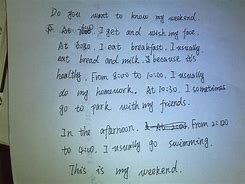 Do you want to know my weekend.
At I get and wish my face.
At 6:30. I eat breakfast. I usually
eat bread and milk. I because it's
healthy. From 8:00 to 10:00, I usually
do my homework. At 10:30, I sometimes
go to park with my friends.
In the afternoon. I At 2:00. From 2:00
to 4:00. I usually go swimming.
This is my weekend.